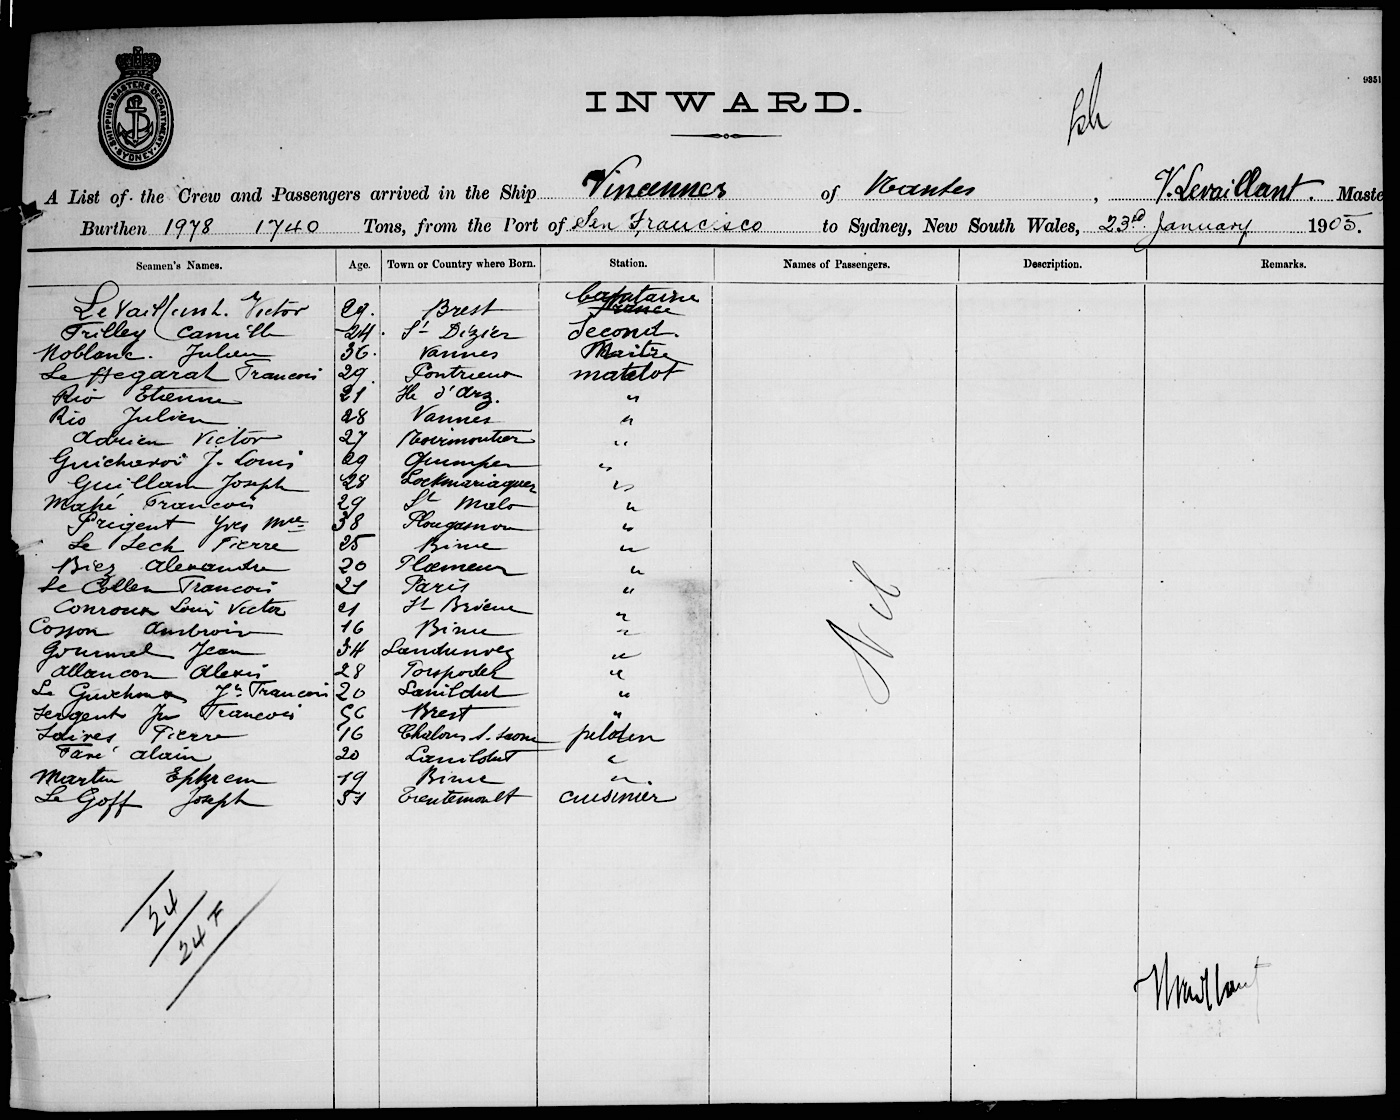 SHIPPING MASTERS DEPARTMENT SYDNEY
9351
INWARD.
A List of the Crew and Passengers arrived in the Ship Vincennes of Nantes, V. Levaillant. Maste
Burthen 1978 1740 Tons, from the Port of San Francisco to Sydney, New South Wales, 23rd January 1905.
Seamen's Names. Age. Town or Country where Born. Station. Names of Passengers. Description. Remarks.
LeVaillant. Victor 29. Brest Capitaine France
Trilley Camille 24. St Dizier Second.
Noblanc. Julien 36. Vannes Maitre
Le Hegarat Francois 29. Pontrieux matelot
Rio Etienne 21 Ile d'Arz. "
Rio Julien 28 Vannes "
Adrien Victor 27 Noirmoutier "
J. Louis 29 Quimper "
Guillam Joseph 28 Lockmariaquer "
Mahé Francois 29 St Malo "
Prigent Yves Mie 38 Plougasnou "
Le Lech Pierre 25 Binic "
Biez Alexandre 20 Ploemeur "
Le Collen Francois 21 Paris "
Conroux Louis Victor 21 St Brieuc "
Cosson Ambroise 16 Binic "
Gourmel Jean 34 Landunvez "
Allancon Alexis 28 Porspoder "
Le Jn Francois 20 Lanildut "
Sergent Jn Francois 36 Brest "
Pierre 16 Chalons s. Saone pilotin
Faré Alain 20 Lanildut "
Martin Ephrem 19 Binic "
Le Goff Joseph 51 Trentemoult cuisinier
Nil
24
24 F